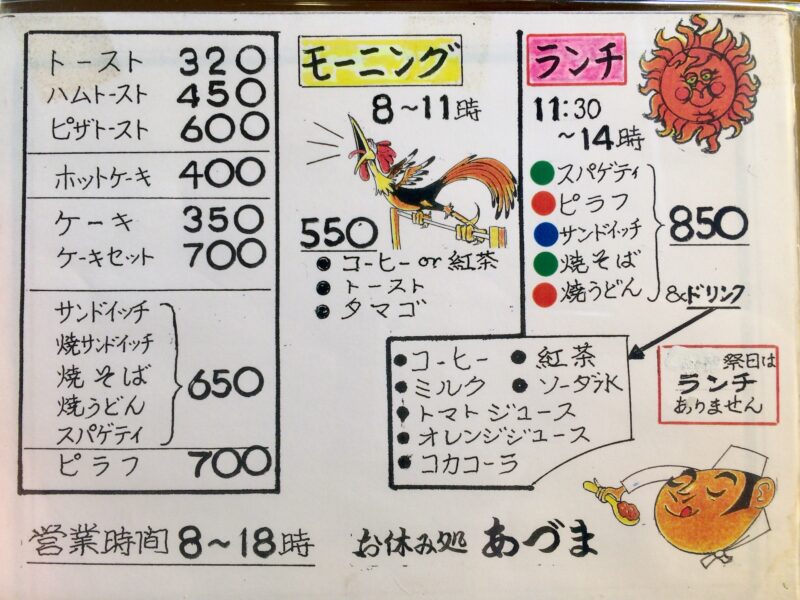 トースト 320
ハムトースト 450
ピザトースト 600
ホットケーキ 400
ケーキ 350
ケーキセット 700
サンドイッチ
焼サンドイッチ
焼そば
焼うどん
スパゲティ
650
ピラフ 700
モーニング
8〜11時
550
コーヒー or 紅茶
トースト
タマゴ
ランチ
11:30
〜14時
スパゲティ
ピラフ
サンドイッチ
焼そば
焼うどん
850
&ドリンク
コーヒー
紅茶
ミルク
ソーダ水
トマトジュース
オレンジジュース
コカコーラ
祭日は
ランチ
ありません
営業時間 8〜18時
お休み処 あづま